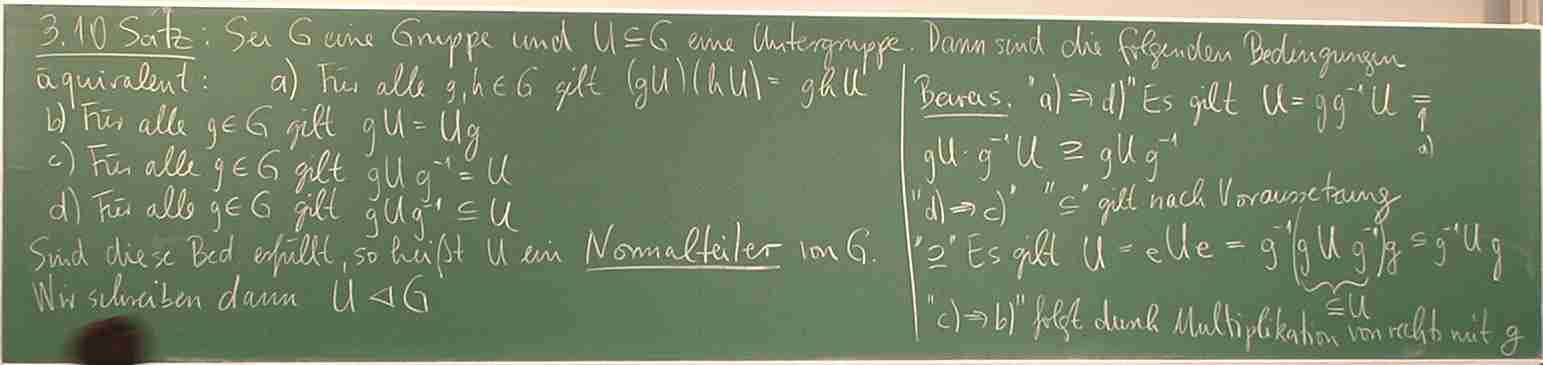 3.10 Satz: Sei G eine Gruppe und U ⊆ G eine Untergruppe. Dann sind die folgenden Bedingungen
äquivalent: a) Für alle g,h ∈ G gilt (gU)(hU) = ghU
b) Für alle g ∈ G gilt gU = Ug
c) Für alle g ∈ G gilt gUg⁻¹ = U
d) Für alle g ∈ G gilt gUg⁻¹ ⊆ U
Sind diese Bed erfüllt, so heißt U ein Normalteiler von G.
Wir schreiben dann U ◁ G
Beweis. "a) ⇒ d)" Es gilt U = gg⁻¹U =
a)
gU·g⁻¹U ⊇ gUg⁻¹
"d) ⇒ c)" "⊆" gilt nach Voraussetzung
"⊇" Es gilt U = eUe = g⁻¹(gUg⁻¹)g ⊆ g⁻¹Ug
⊆U
"c) ⇒ b)" folgt durch Multiplikation von rechts mit g